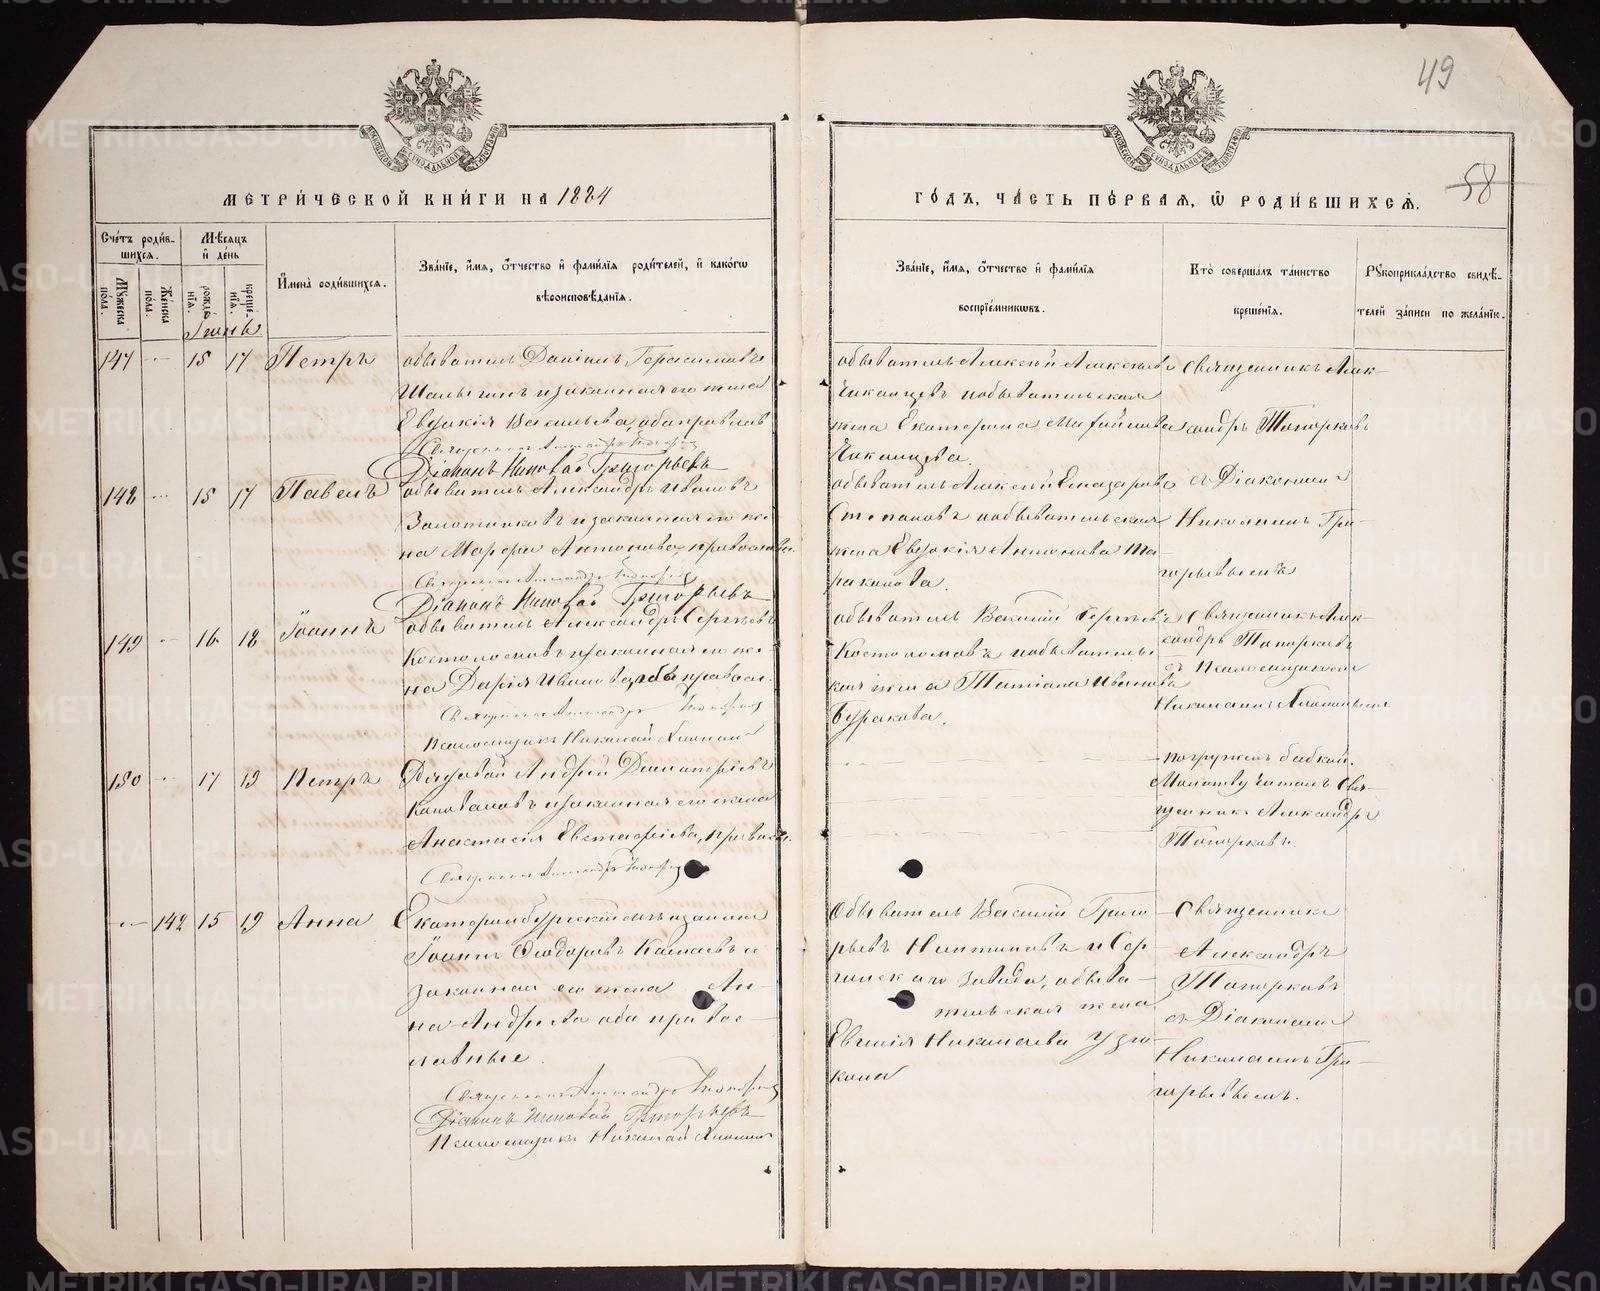 49
58
МЕТРИ́ЧЕСКОЙ КНИ́ГИ НА 1884
ГО́ДЪ, ЧА́СТЬ ПЕ́РВАЯ, Ѡ РОДИ́ВШИХСЯ.
Сче́тъ роди́в-
шихся.
Му́жеска пола.
Же́нска пола.
Мѣ́сяцъ
и де́нь
рожде́нїя.
креще́нїя.
И́мена̀ роди́вшихся.
Зва́нїе, и́мя, о́тчество и фами́лїя роди́телей, и како́гѡ
вѣроисповѣ́данїя.
Зва́нїе, и́мя, о́тчество и фами́лїя
воспрїе́мникѡвъ.
Кто̀ соверша́лъ та́инство
креще́нїя.
Рукоприкла́дство свидѣ́-
телей за́писи по жела́нїю.
Іюнь
147 15 17 Петръ
обыватель Даніилъ Герасимовъ
и законная его жена
Евдокія Васильева, оба правосл.
Священникъ Александръ Топорковъ
Діаконъ Николай Григорьевъ
обыватель Алексѣй Алексѣевъ
и обывательская
жена Екатерина Михайлова
Священникъ Алек-
сандръ Топорковъ
съ Діакономъ
Николаемъ Гри-
горьевымъ
148 15 17 Павелъ
обыватель Александръ Ивановъ
Золотниковъ и законная его же-
на Марфа Антонова, православн.
Священникъ Александръ Топорковъ
Діаконъ Николай Григорьевъ
обыватель Алексѣй Елеазаровъ
Степановъ и обывательская
жена Евдокія Антонова Та-
раканова.
149 16 18 Іоаннъ
обыватель Александръ Сергѣевъ
Костоломовъ и законная его же-
на Дарія Иванова, оба правосл.
Священникъ Александръ Топорковъ
Псаломщикъ Николай
обыватель Василій Сергѣевъ
Костоломовъ и обыватель-
ская жена Татіана Иванова
Буракова.
Священникъ Алек-
сандръ Топорковъ
съ Псаломщикомъ
Николаемъ
150 17 19 Петръ
Андрей Димитріевъ
Коноваловъ и законная его жена
Анастасія Евстафіева, правосл.
Священникъ Александръ Топорковъ
погруженъ бабкой.
Молитву читалъ Свя-
щенникъ Александръ
Топорковъ.
142 15 19 Анна
Екатеринбургскій мѣщанинъ
Іоаннъ Ѳеодоровъ и
законная его жена Ан-
на Андреева оба правос-
лавные.
Священникъ Александръ Топорковъ
Діаконъ Николай Григорьевъ
Псаломщикъ Николай
Обыватель Василій Григо-
рьевъ и Сер-
гинскаго завода, обыва-
тельская жена
Евгенія Николаева
Священникъ
Александръ
Топорковъ
съ Діакономъ
Николаемъ Гри-
горьевымъ.